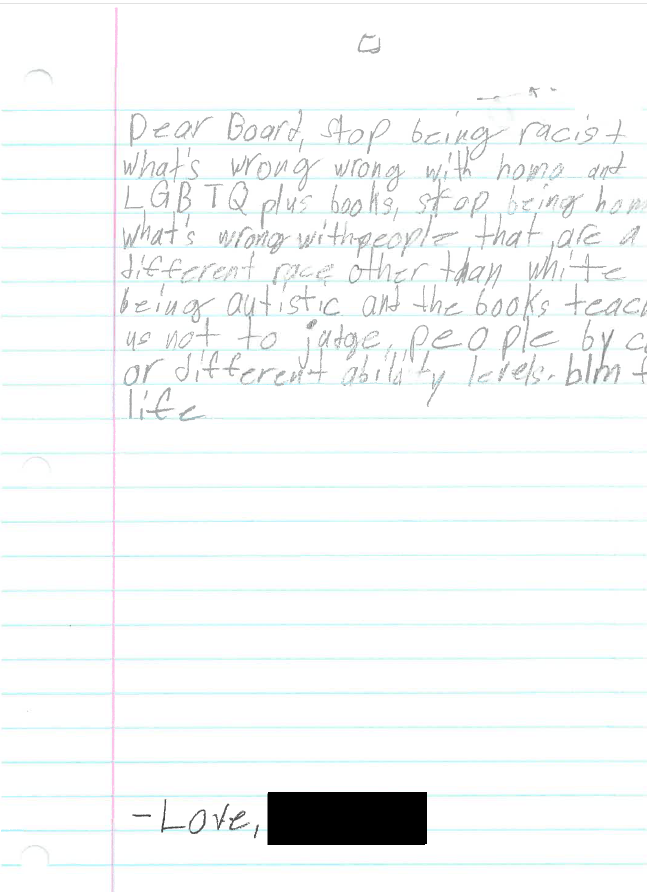 Dear Board, stop being racist
what's wrong wrong with homo and
LGBTQ plus books, stop being hom
what's wrong withpeople that are a
different race other than white
being autistic and the books teach
us not to judge, people by c
or different ability levels. blm f
life
-Love,